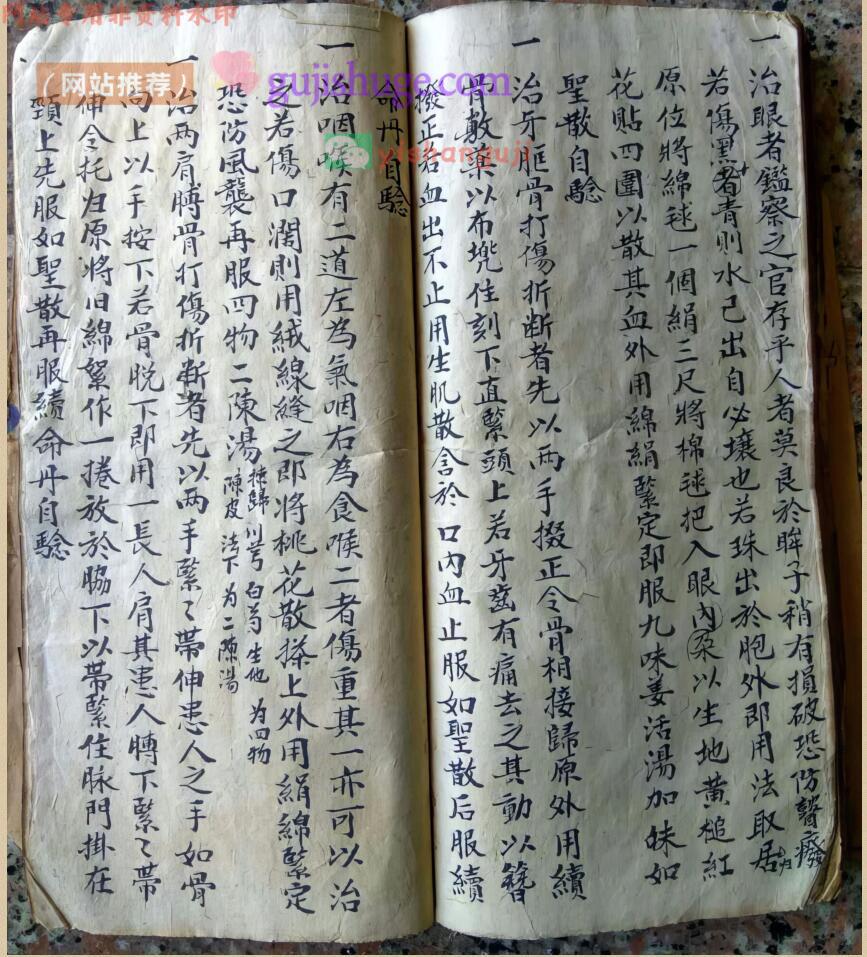 网站专用非资料水印
（网站推荐）
gujishuge.com
yishanguji
一 治眼者鑑察之官存乎人者莫良於眸子稍有損破恐防瞽癈
若傷黑者青則水已出自必壞也若珠出於胞外即用法取居
原位將綿毬一個絹三尺將棉毬把入眼內㮈以生地黃槌紅
花貼四圍以散其血外用綿絹緊定即服九味姜活湯加妹如
聖散自驗
一 治牙眶骨打傷折断者先以两手掇正令骨相接歸原外用續
骨敷藥以布兠住刻下直緊頭上若牙齒有痛去之其動以簪
撥正若血出不止用生肌散含於口內血止服如聖散后服續
命丹自驗
一 治咽喉有二道左為氣咽右為食喉二者傷重其一亦可以治
之若傷口濶則用絨線縫之即將桃花散搽上外用絹綿緊定
恐防風襲再服四物二陳湯
揀歸 川芎 白芍 生地 为四物
陳皮 法下 为二陳湯
一 治两肩膊骨打傷折断者先以两手緊々帶伸患人之手如骨
向上以手按下若骨脱下即用一長人肩其患人膊下緊々帶
伸令托归原將旧綿絮作一捲放於脇下以帶緊住脉門掛在
頸上先服如聖散再服續命丹自驗